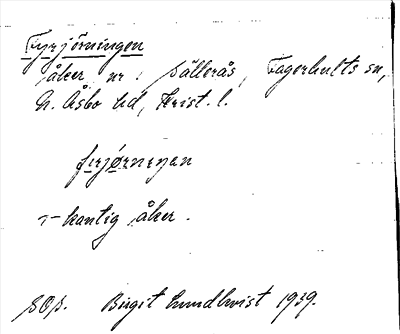 Fyrjörningen
åker nr 1 Sällerås, Fagerhults sn,
N. Åsbo hd, Krist. l.
firjørnenan
7-kantig åker.
SOä. Birgit Lundkvist 1939.